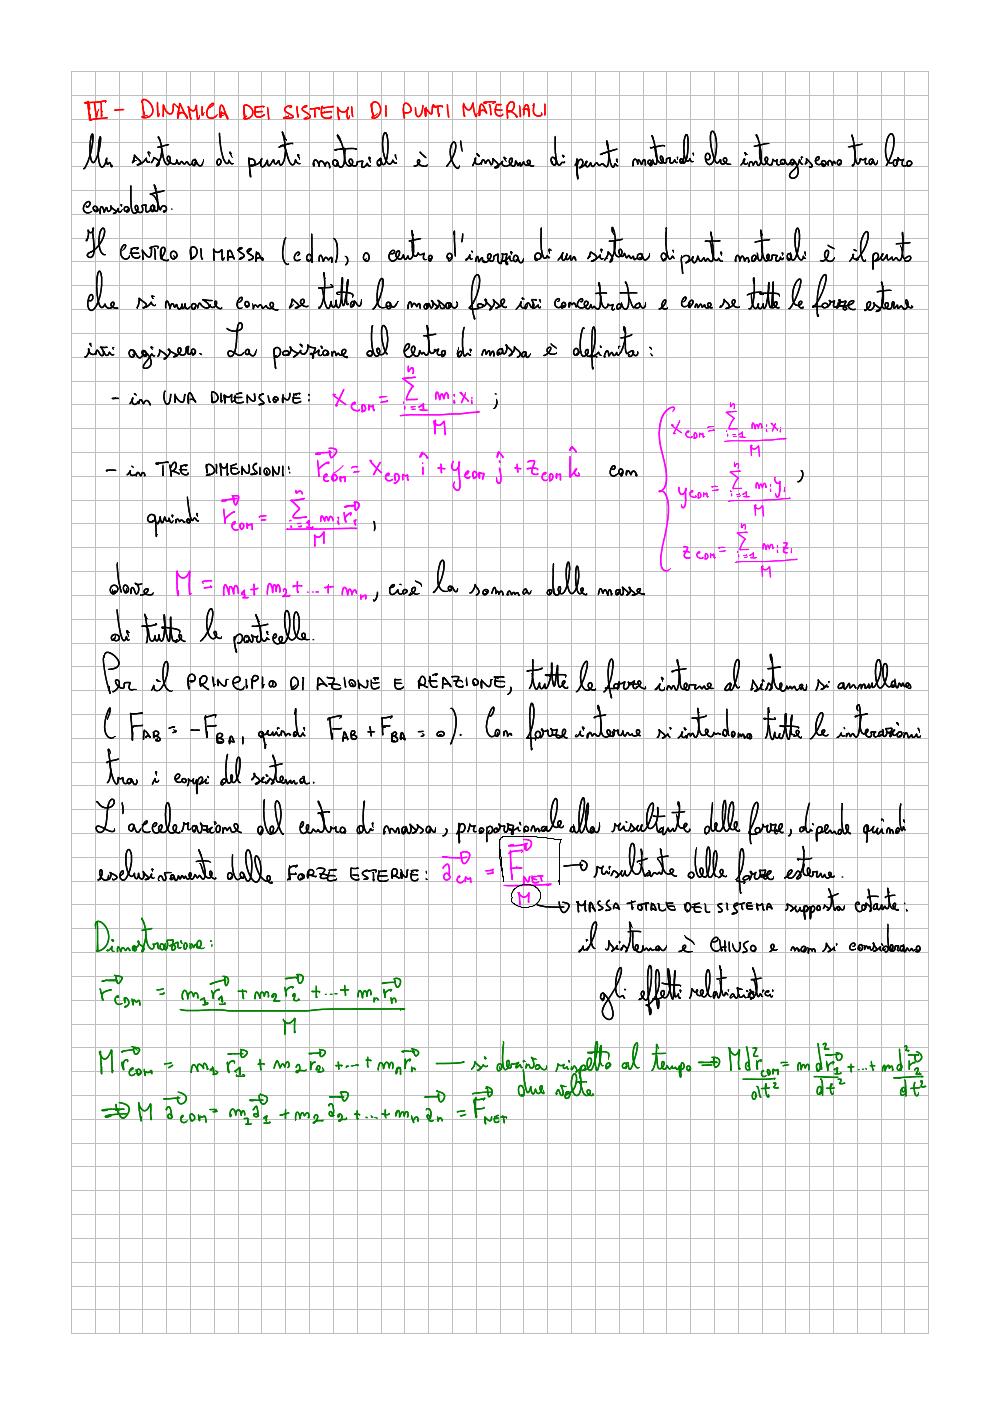 VII - DINAMICA DEI SISTEMI DI PUNTI MATERIALI
Un sistema di punti materiali è l'insieme di punti materiali che interagiscono tra loro
considerato.
Il CENTRO DI MASSA (cdm), o centro d'inerzia di un sistema di punti materiali è il punto
che si muove come se tutta la massa fosse ivi concentrata e come se tutte le forze esterne
ivi agissero. La posizione del centro di massa è definita:
- in UNA DIMENSIONE: x_CDM = \frac{\sum_{i=1}^{n} m_i x_i}{M} ;
- in TRE DIMENSIONI: \vec{r}_{CDM} = x_{CDM} \hat{i} + y_{CDM} \hat{j} + z_{CDM} \hat{k} con { x_{CDM} = \frac{\sum_{i=1}^{n} m_i x_i}{M}
y_{CDM} = \frac{\sum_{i=1}^{n} m_i y_i}{M} ,
z_{CDM} = \frac{\sum_{i=1}^{n} m_i z_i}{M}
quindi \vec{r}_{CDM} = \frac{\sum_{i=1}^{n} m_i \vec{r}_i}{M} ,
dove M = m_1 + m_2 + ... + m_n, cioè la somma delle masse
di tutte le particelle.
Per il PRINCIPIO DI AZIONE E REAZIONE, tutte le forze interne al sistema si annullano
(F_AB = -F_BA, quindi F_AB + F_BA = 0). Con forze interne si intendono tutte le interazioni
tra i corpi del sistema.
L'accelerazione del centro di massa, proporzionale alla risultante delle forze, dipende quindi
esclusivamente dalle FORZE ESTERNE: \vec{a}_{CM} = \frac{\vec{F}_{NET}}{M} → risultante delle forze esterne.
→ MASSA TOTALE DEL SISTEMA supposta costante:
il sistema è CHIUSO e non si considerano
gli effetti relativistici
Dimostrazione:
\vec{r}_{CDM} = \frac{m_1 \vec{r}_1 + m_2 \vec{r}_2 + ... + m_n \vec{r}_n}{M}
M \vec{r}_{CDM} = m_1 \vec{r}_1 + m_2 \vec{r}_2 + ... + m_n \vec{r}_n — si deriva rispetto al tempo ⇒ M \frac{d^2 \vec{r}_{CDM}}{dt^2} = m \frac{d^2 \vec{r}_1}{dt^2} + ... + m \frac{d^2 \vec{r}_2}{dt^2}
due volte
⇒ M \vec{a}_{CDM} = m_1 \vec{a}_1 + m_2 \vec{a}_2 + ... + m_n \vec{a}_n = \vec{F}_{NET}